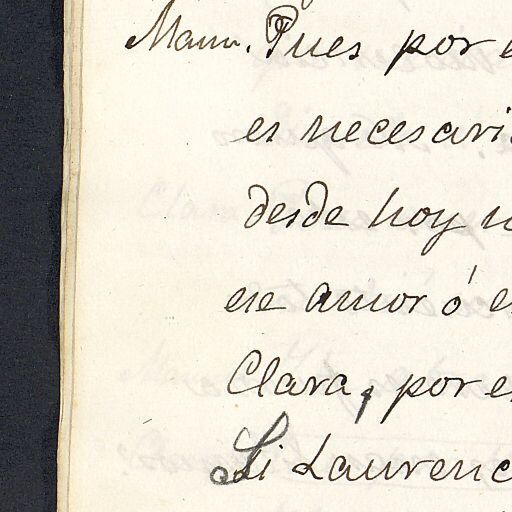 Manu. Pues por e
es necesari
desde hoy
ese amor ó e
Clara, por e
Si Laurenc